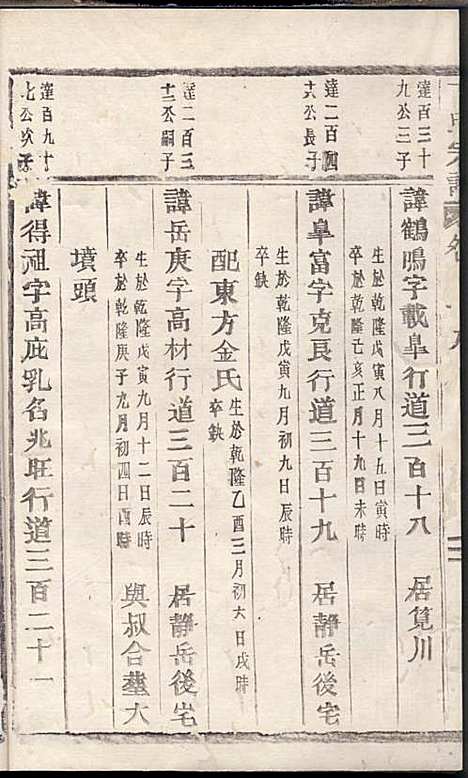 達百三十
九公三子
諱鶴鳴字載皐行道三百十八　居筧川
生於乾隆戊寅八月十五日寅時
卒於乾隆己亥正月十九日未時
達二百四
十六公長子
諱皐富字克良行道三百十九　居靜岳後宅
生於乾隆戊寅九月初九日辰時
卒缺
配東方金氏
生於乾隆乙酉三月初六日戌時
卒缺
達二百三
十二公嗣子
諱岳庚字高材行道三百二十　居靜岳後宅
生於乾隆戊寅九月十二日辰時
卒於乾隆庚子九月初四日酉時
與叔合墓大
墳頭
達百九十
七公次子
諱得祖字高庇乳名兆旺行道三百二十一